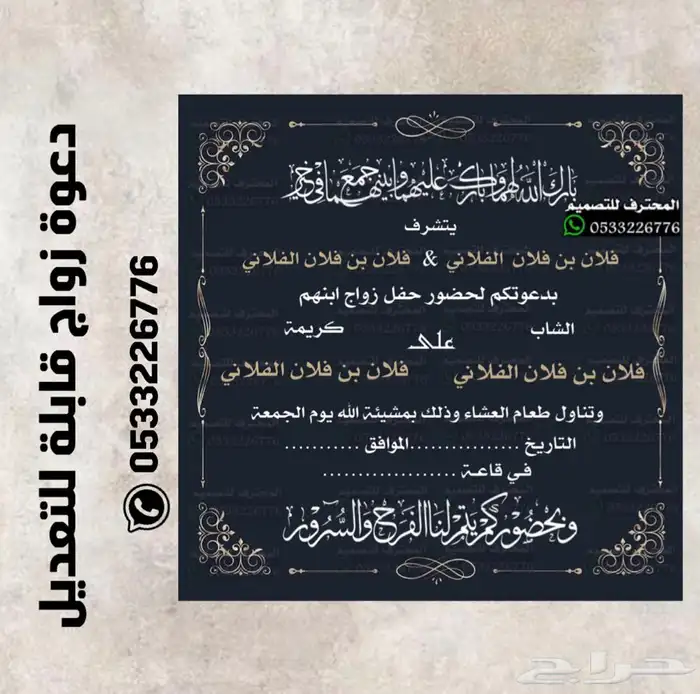 دعوة زواج قابلة للتعديل
0533226776
بارك الله لهما وبارك عليهما وجمع بينهما في خير
المحترف للتصميم
0533226776
يتشرف
فلان بن فلان الفلاني & فلان بن فلان الفلاني
بدعوتكم لحضور حفل زواج ابنهم
الشاب على كريمة
فلان بن فلان الفلاني فلان بن فلان الفلاني
وتناول طعام العشاء وذلك بمشيئة الله يوم الجمعة
التاريخ ................الموافق ...........
في قاعة ...................
وبحضوركم يتم لنا الفرح والسرور
حراج